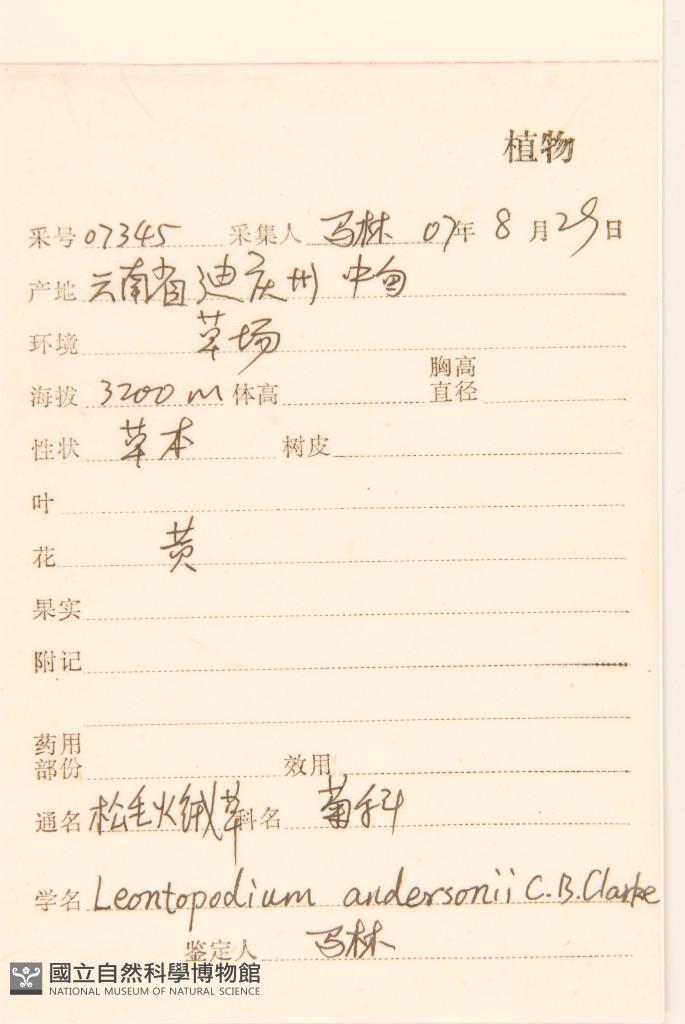 植物
采号 07345 采集人 马林 07年 8月29日
产地 云南省迪庆州 中甸
环境 草场
海拔 3200m 体高 胸高直径
性状 草本 树皮
叶
花 黄
果实
附记
药用部份 效用
通名 松毛火绒草 科名 菊科
学名 Leontopodium andersonii C.B.Clarke
鉴定人 马林
國立自然科學博物館
NATIONAL MUSEUM OF NATURAL SCIENCE